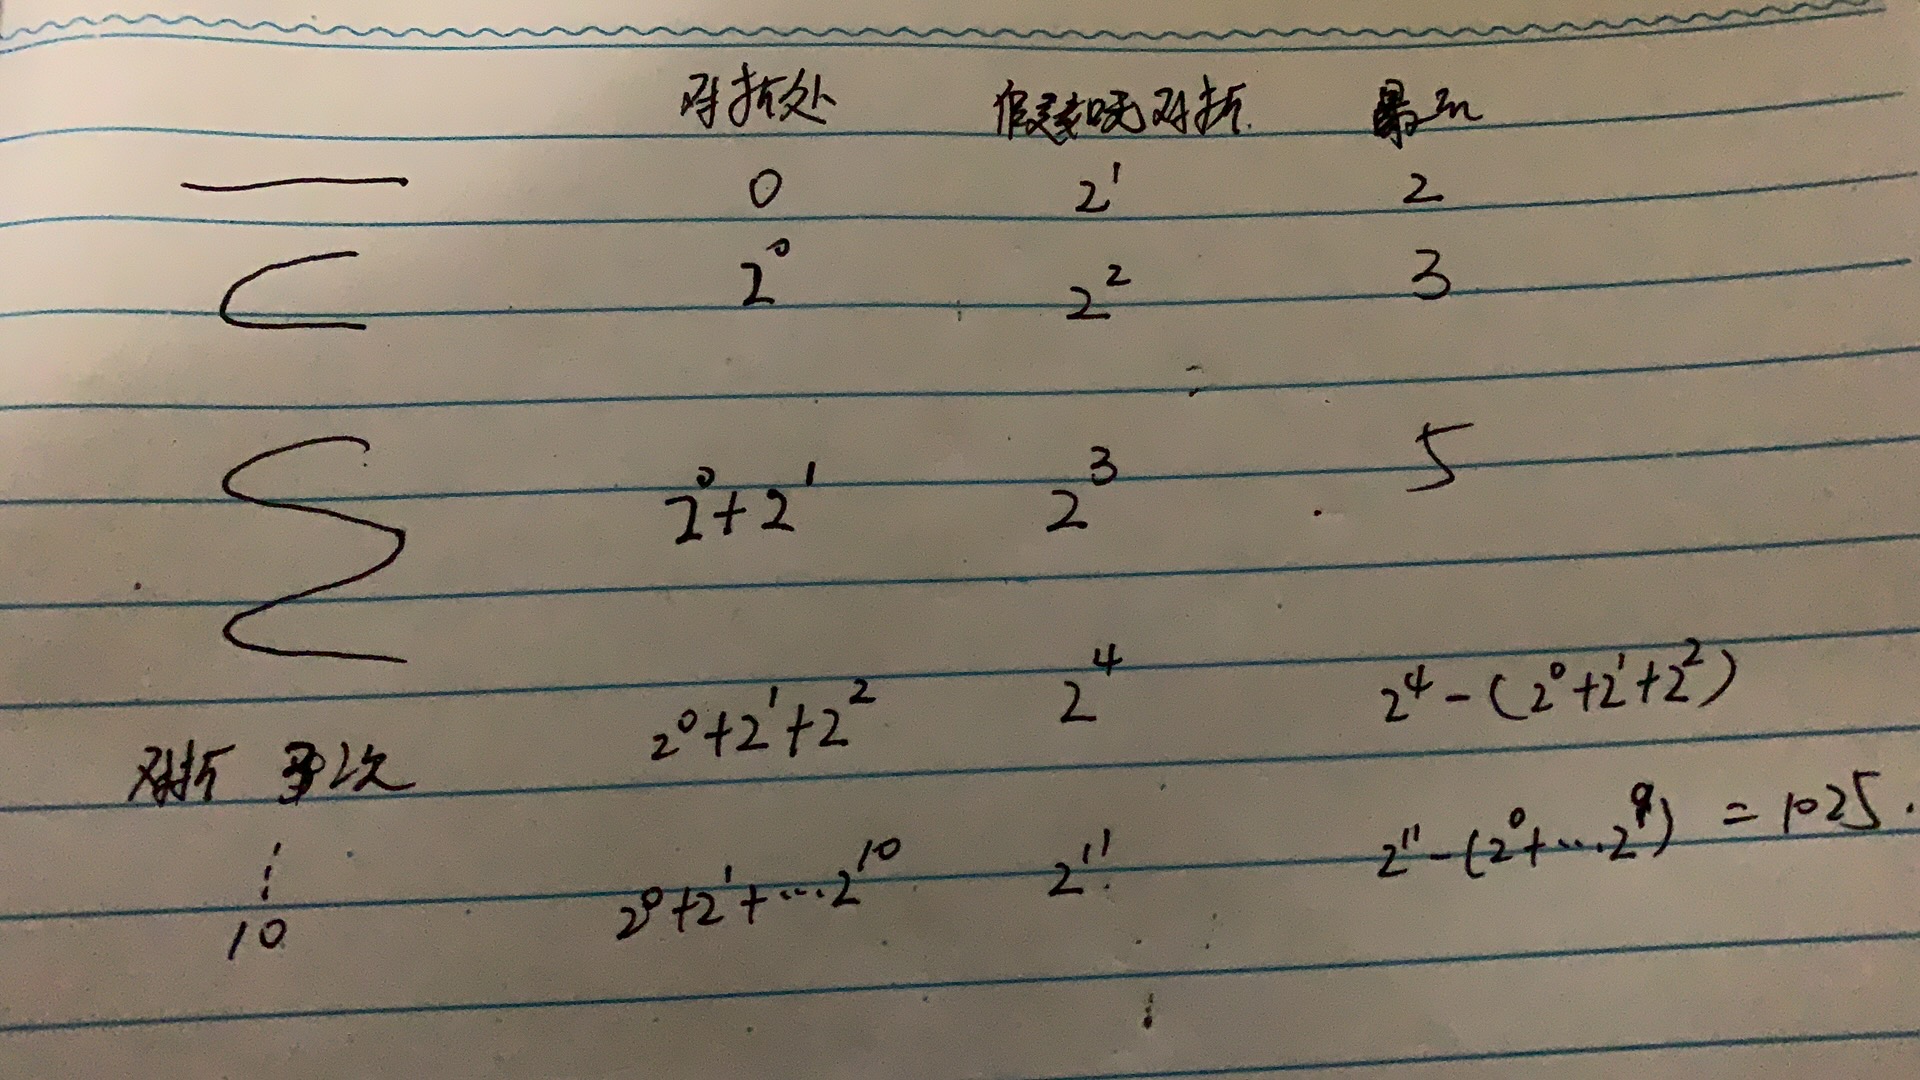 对折处 假设无对折 最
0 2¹ 2
2⁰ 2² 3
2⁰+2¹ 2³ 5
2⁰+2¹+2² 2⁴ 2⁴-(2⁰+2¹+2²)
对折 3次
⋮ 2⁰+2¹+…2¹⁰ 2¹¹ 2¹¹-(2⁰+…2⁹) = 1025.
10